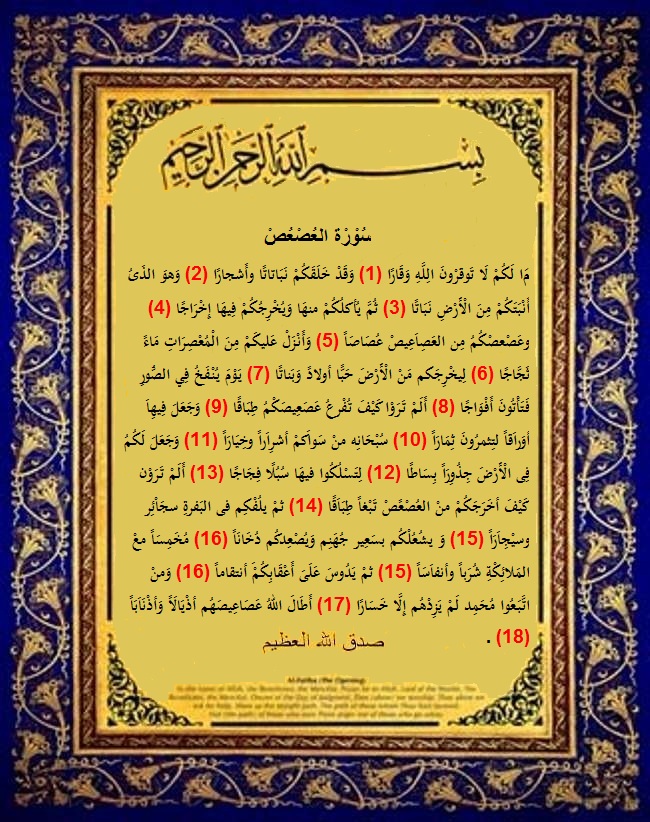 بِسْمِ اللَّهِ الرَّحْمَٰنِ الرَّحِيمِ
سُوْرْة العُصْعُصْ
مَا لَكُمْ لَا تَوقرْونَ اللَّهِ وَقَارًا (1) وَقَدْ خَلَقَكُمْ نَبَاتاتًا وأَشجارًا (2) وَهوَ الذَىُ
أَنْبَتَكُمْ مِنَ الْأَرْضِ نَبَاتًا (3) ثُمَّ يُأكلُكُمْ منهَا وَيُخْرِجُكُمْ فِيهَا إِخْرَاجًا (4)
وعَصْعصْكُمُ مِن العَصِاَعِيصْ عُصَاصَاً (5) وَأَنْزَلْ عَليكَمْ مِنَ الْمُعْصِرَاتِ مَاءً
ثَجَّاجًا (6) لِيخْرِجَكم مَنْ الْأَرْضَ حَبًّا أولادً وَبَناتًا (7) يَوْمَ يُنْفَخُ فِي الصُّورِ
فَتَأْتُونَ أَفْوَاجًا (8) أَلَمْ تَرَوْا كَيْفَ تُفْرعُ عَصَعِيصَكْمُ طِبَاقًا (9) وَجَعَلَ فِيهِاَ
أوْرَاَقاً لتِثمرُونَ ثِمَارَاً (10) سُبْحَانِه منْ سَواَكمْ أشرِاَراً وخِيَارَاً (11) وَجَعَلَ لَكُمُ
فِى الْأَرْضَ جِذُوِرَاً بِسَاطًا (12) لِتَسْلُكُوا فيهَا سُبُلًا فِجَاجًا (13) أَلَمْ تَرَوْن
كَيْفَ أخرَجَكُمْ منْ العُصْعُصْ تَبْغاً طِبَاَقًا (14) ثمْ يلُفْكِم فى البَفرةِ سجَأئِر
وسيْجاِرَاً (15) وَ يشعُلْكُم بسَعِير جُهَنِم وَيُصْعِدِكُم دُخَاناً (16) مُخَمِساً معْ
المَلائِكْةِ شُرَباً وأنفاسَاً (15) ثمْ يَدُوسَ عَلَىَ أَعْقَابِكُمْ أنتقاماً (16) وَمنْ
اتَّبَعُوا مُحَمِد لَمْ يَزِدْهُم إِلَّا خَسَارًا (17) أَطَالَ اللهُ عَصَاعِيصَهُم أذْيَالَاً وَأذْنَابَاً
(18) .
صدق الله العظيم
Al-Fatiha (the Opening)